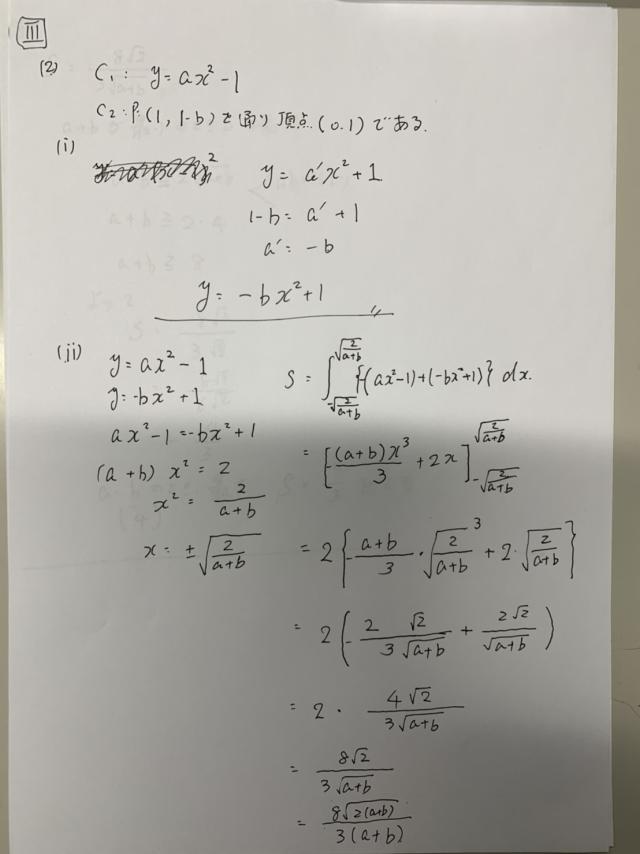 III
(2) C₁: y = ax² - 1
C₂: P(1, 1-b)を通り頂点(0.1)である.
(i)
y = a'x² + 1
1-b = a' + 1
a' = -b
y = -bx² + 1
(ii) y = ax² - 1
y = -bx² + 1
ax² - 1 = -bx² + 1
(a+b)x² = 2
x² = 2/(a+b)
x = ±√(2/(a+b))
S = ∫_{-√(2/(a+b))}^{√(2/(a+b))} {-(ax²-1)+(-bx²+1)} dx.
= [-(a+b)x³/3 + 2x]_{-√(2/(a+b))}^{√(2/(a+b))}
= 2{-(a+b)/3 · √(2/(a+b))³ + 2·√(2/(a+b))}
= 2(-2√2/(3√(a+b)) + 2√2/√(a+b))
= 2 · 4√2/(3√(a+b))
= 8√2/(3√(a+b))
= 8√(2(a+b))/(3(a+b))